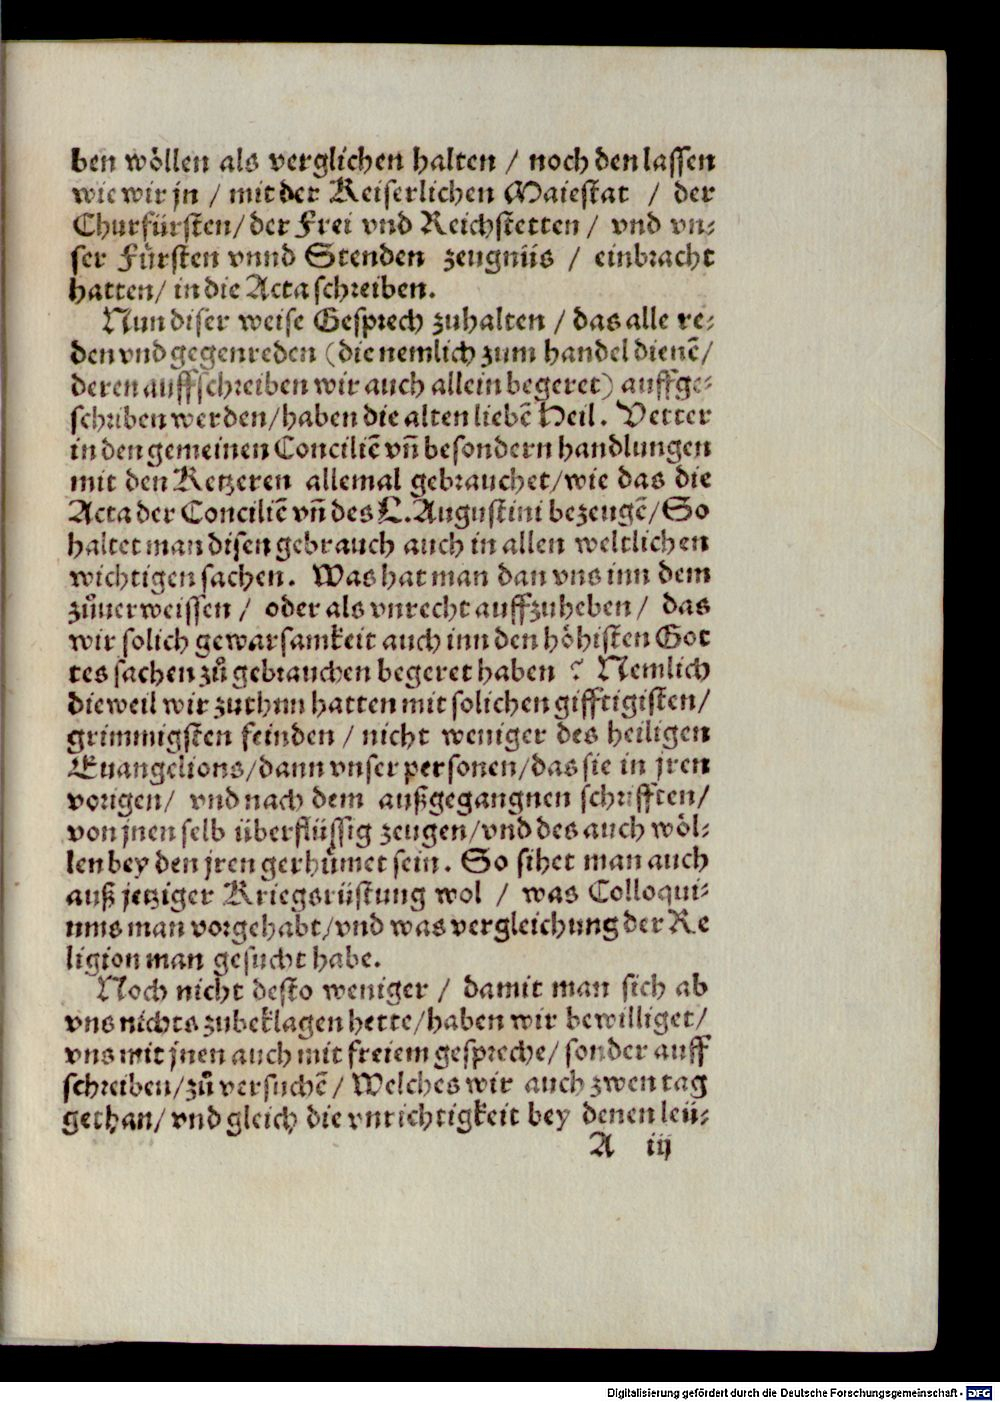 ben wöllen als verglichen halten / noch den lassen
wie wir jn / mit der Keiserlichen Maiestat / der
Churfürsten/ der Frei vnd Reichstetten / vnd vn⸗
ser Fürsten vnnd Stenden zeugniis / einbracht
hatten/ in die Acta schreiben.
Nun diser weise Gesprech zuhalten / das alle re⸗
den vnd gegenreden (die nemlich zum handel dienē/
deren auffschreiben wir auch allein begeret) auffge⸗
schriben werden/haben die alten liebē Heil. Vetter
in den gemeinen Conciliē vn̄ besondern handlungen
mit den Ketzeren allemal gebrauchet/wie das die
Acta der Conciliē vn̄ des L. Augustini bezeugē/So
haltet man disen gebrauch auch in allen weltlichen
wichtigen sachen. Was hat man dan vns inn dem
zůuerweissen / oder als vnrecht auffzuheben / das
wir solich gewarsamkeit auch inn den höhisten Got
tes sachen zů gebrauchen begeret haben ? Nemlich
dieweil wir zuthun hatten mit solichen gifftigisten/
grimmigsten feinden / nicht weniger des heiligen
Euangelions/dann vnser personen/das sie in jren
vorigen/ vnd nach dem außgegangnen schrifften/
von jnen selb überflüssig zeugen/vnd des auch wöl⸗
len bey den jren gerhůmet sein. So sihet man auch
auß jetziger Kriegsrüstung wol / was Colloqui⸗
ums man vorgehabt/vnd was vergleichung der Re
ligion man gesucht habe.
Noch nicht desto weniger / damit man sich ab
vns nichts zubeklagen hette/haben wir bewilliget/
vns mit jnen auch mit freiem gespreche/ sonder auff
schreiben/zů versuchē/ Welches wir auch zwen tag
gethan/ vnd gleich die vnrichtigkeit bey denen leü⸗
A iij
Digitalisierung gefördert durch die Deutsche Forschungsgemeinschaft - DFG